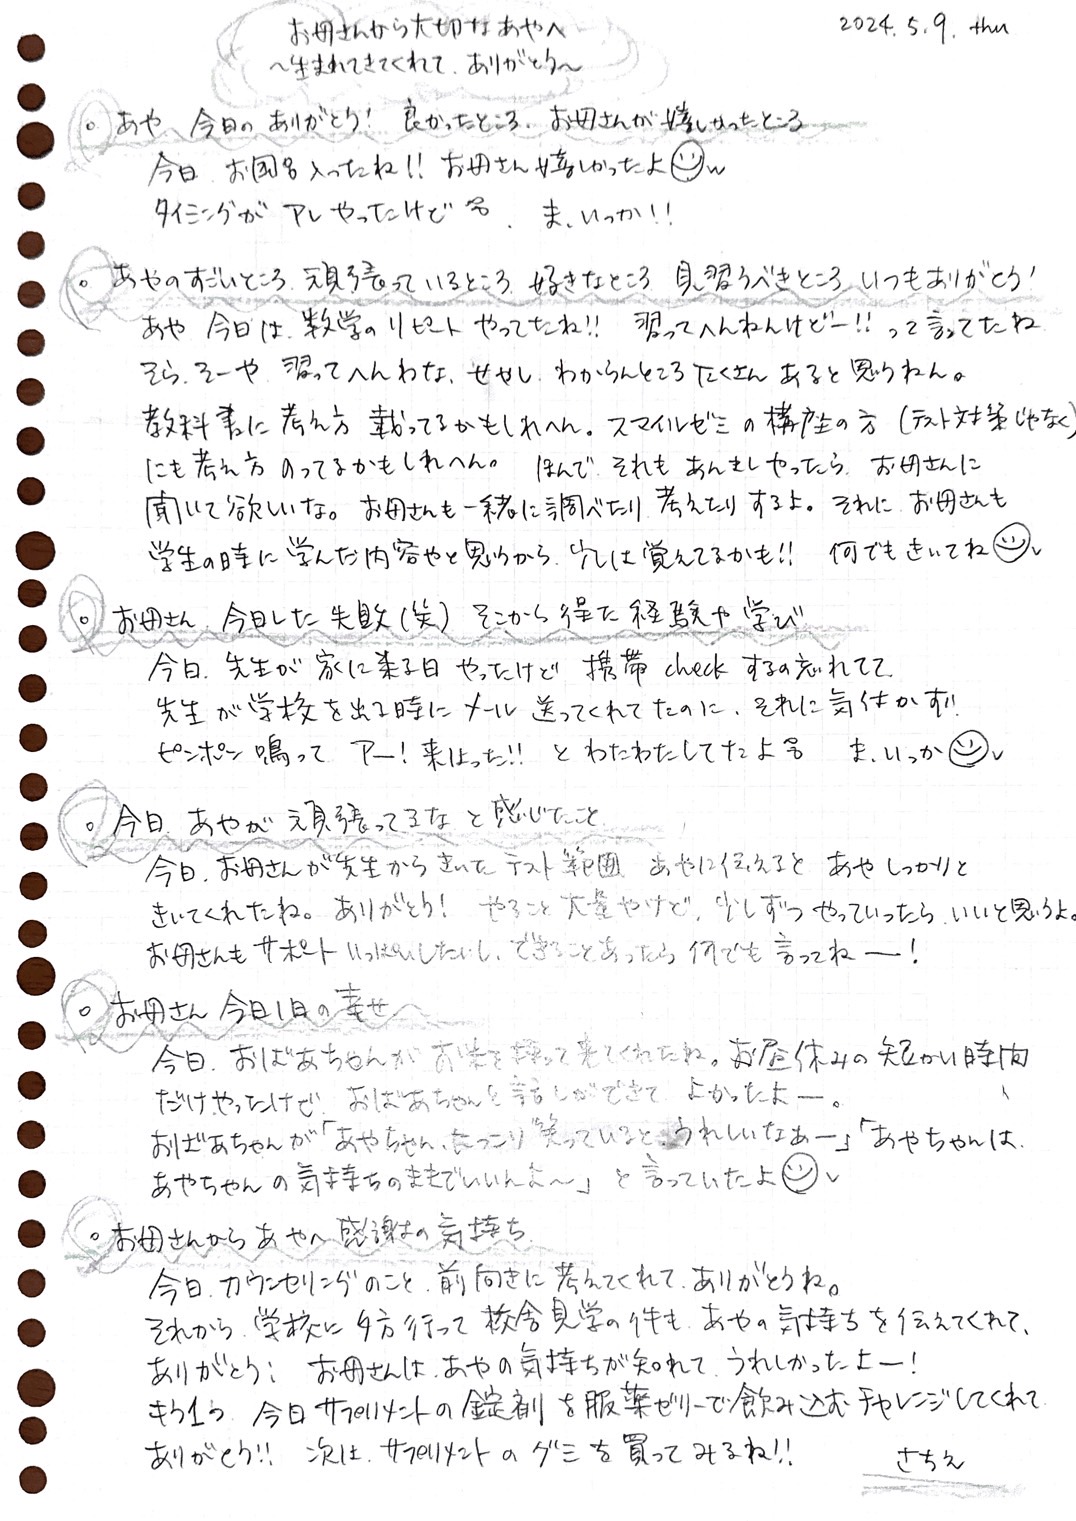 2024. 5. 9. thu
お母さんから大切なあやへ
〜生まれてきてくれて、ありがとう〜
。あや 今日の ありがとう! 良かったところ、お母さんが嬉しかったところ
今日、お風呂入ったね!! お母さん嬉しかったよ
タイミングが アレ やったけど 、ま、いっか!!
。あやのすごいところ、頑張っているところ、好きなところ 見習うべきところ、いつもありがとう!
あや 今日は、数学のリピート やってたね!! 習ってへんねんけどー!! って言ってたね
そら、そーや、習ってへんわな、せやし、わからんところたくさん あると思うねん。
教科書に考え方 載ってるかもしれへん。スマイルゼミの講座の方 (テスト対策じゃなく)
にも考え方 のってるかもしれへん。 ほんで、それも あんましやったら、お母さんに
聞いて欲しいな。お母さんも一緒に調べたり 考えたりするよ。それに お母さんも
学生の時に学んだ内容やと思うから、少しは覚えてるかも!! 何でもきいてね
。お母さん、今日した失敗(笑) そこから得た経験や学び
今日、先生が 家に来る日 やったけど 携帯 check するの忘れてて、
先生が学校を出る時に メール 送ってくれてたのに、それに気付かず!!
ピンポン 鳴って アー! 来はった!! と わたわたしてたよ ま、いっか
。今日、あやが 頑張ってるな と感じたこと
今日、お母さんが先生からきいた テスト範囲 あやに伝えると あや しっかりと
きいてくれたね。ありがとう! やること 大量やけど、少しずつ やっていったら、いいと思うよ。
お母さんも サポート いっぱいしたいし、できることあったら 何でも 言ってねー!
。お母さん 今日1日の幸せ
今日、おばあちゃんが お米を持って来てくれたね。お昼休みの短かい時間
だけやったけど、おばあちゃんと話しができて よかったよー。
おばあちゃんが「あやちゃん、にっこり笑っていると、うれしいなぁー」「あやちゃんは、
あやちゃんの気持ちのままでいいんよ〜」と言っていたよ
。お母さんから あやへ 感謝の気持ち
今日、カウンセリングのこと、前向きに 考えてくれて、ありがとうね。
それから、学校に 夕方 行って 校舎見学の件も、あやの気持ちを伝えてくれて、
ありがとう! お母さんは、あやの気持ちが知れて、うれしかったよー!
もう1つ、今日 サプリメントの錠剤を服薬ゼリーで飲み込むチャレンジしてくれて
ありがとう!! 次は、サプリメントの グミを買ってみるね!!
さちえ